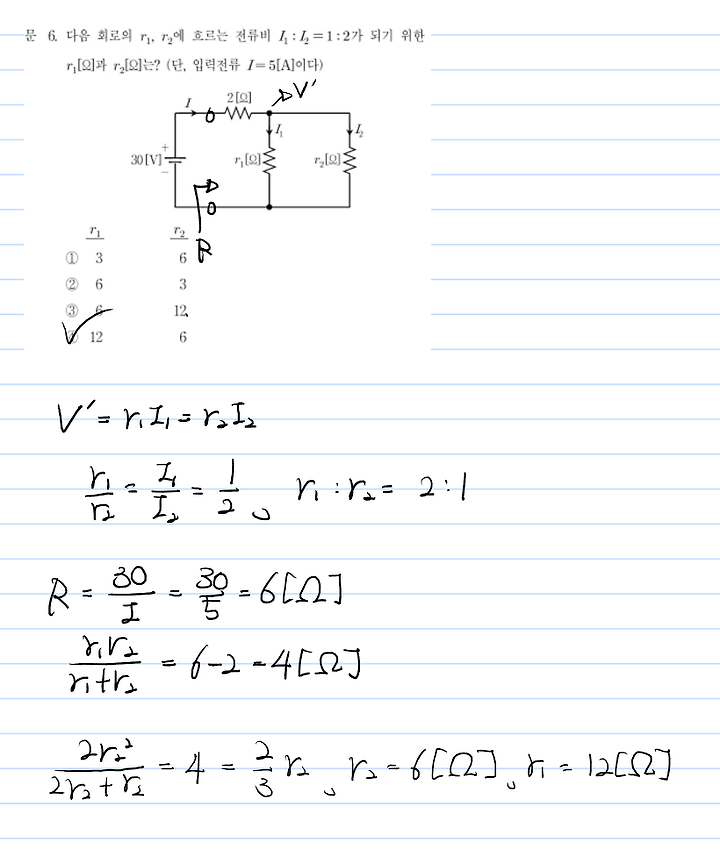 문 6. 다음 회로의 r₁, r₂에 흐르는 전류비 I₁ : I₂ = 1 : 2가 되기 위한
r₁[Ω]과 r₂[Ω]는? (단, 입력전류 I = 5[A]이다)
I 2[Ω] V'
I₁ I₂
+
30[V] r₁[Ω] r₂[Ω]
−
R
r₁ r₂
① 3 6
② 6 3
③ 6 12
12 6
V' = r₁I₁ = r₂I₂
r₁/r₂ = I₁/I₂ = 1/2, r₁ : r₂ = 2 : 1
R = 30/I = 30/5 = 6[Ω]
r₁r₂/r₁+r₂ = 6-2 = 4[Ω]
2r₂²/2r₂+r₂ = 4 = 2/3 r₂, r₂ = 6[Ω], r₁ = 12[Ω]